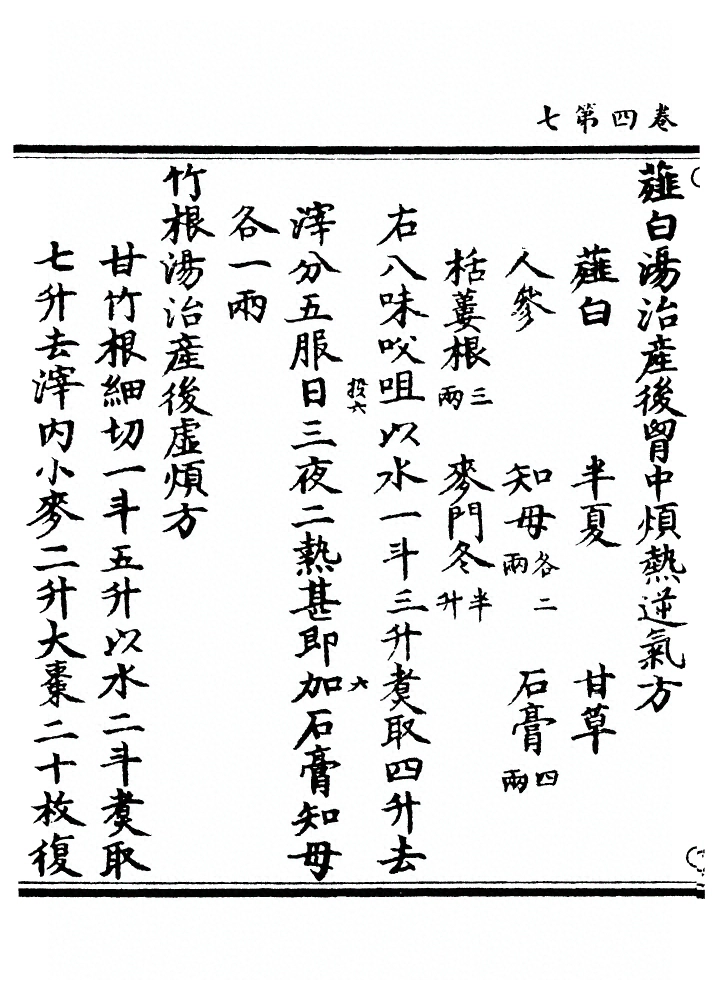 卷四第七
薤白湯治產後胷中煩熱逆氣方
薤白 半夏 甘草
人參 知母各二兩 石膏四兩
栝蔞根三兩 麥門冬半升
右八味㕮咀以水一斗三升煑取四升去
滓分五服日三夜二熱甚即加石膏知母
投六 六
各一兩
竹根湯治產後虛煩方
甘竹根細切一斗五升以水二斗煑取
七升去滓内小麥二升大棗二十枚復